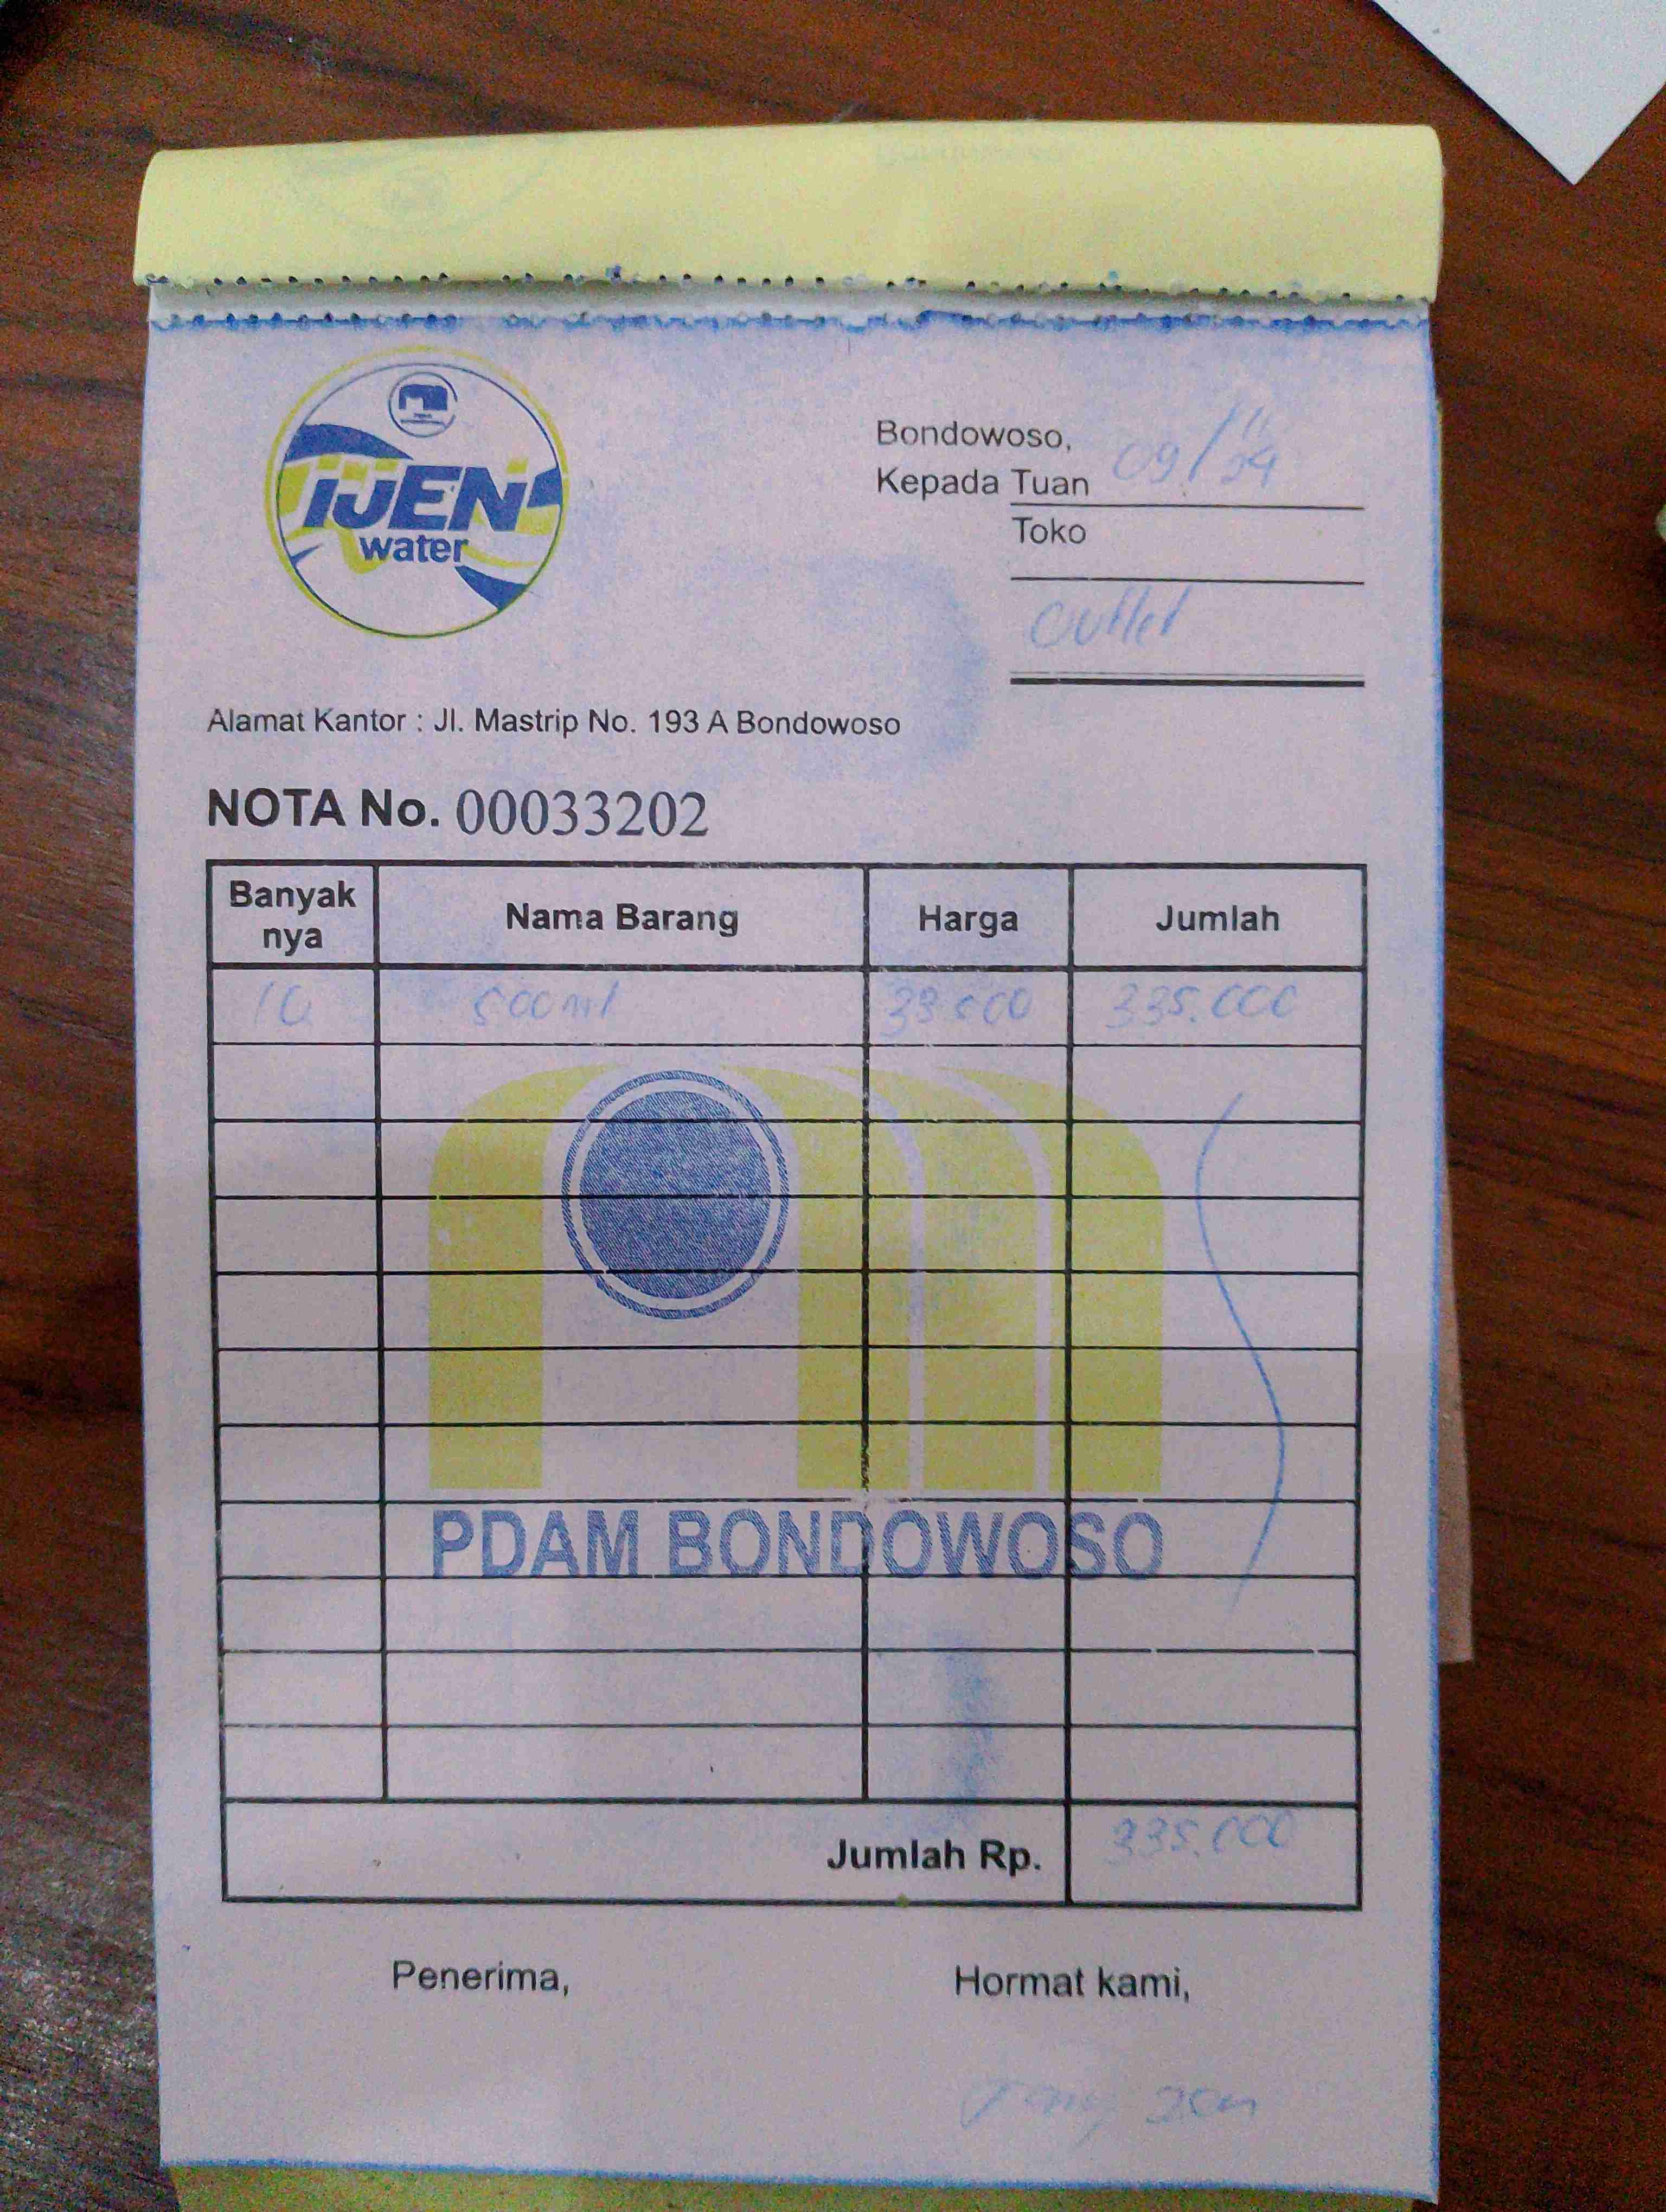 IJEN
water
Bondowoso, 09/11/24
Kepada Tuan
Toko
Outlet
Alamat Kantor : Jl. Mastrip No. 193 A Bondowoso
NOTA No. 00033202
Banyak nya Nama Barang Harga Jumlah
10 500 ml 33.500 335.000
PDAM BONDOWOSO
Jumlah Rp. 335.000
Penerima, Hormat kami,